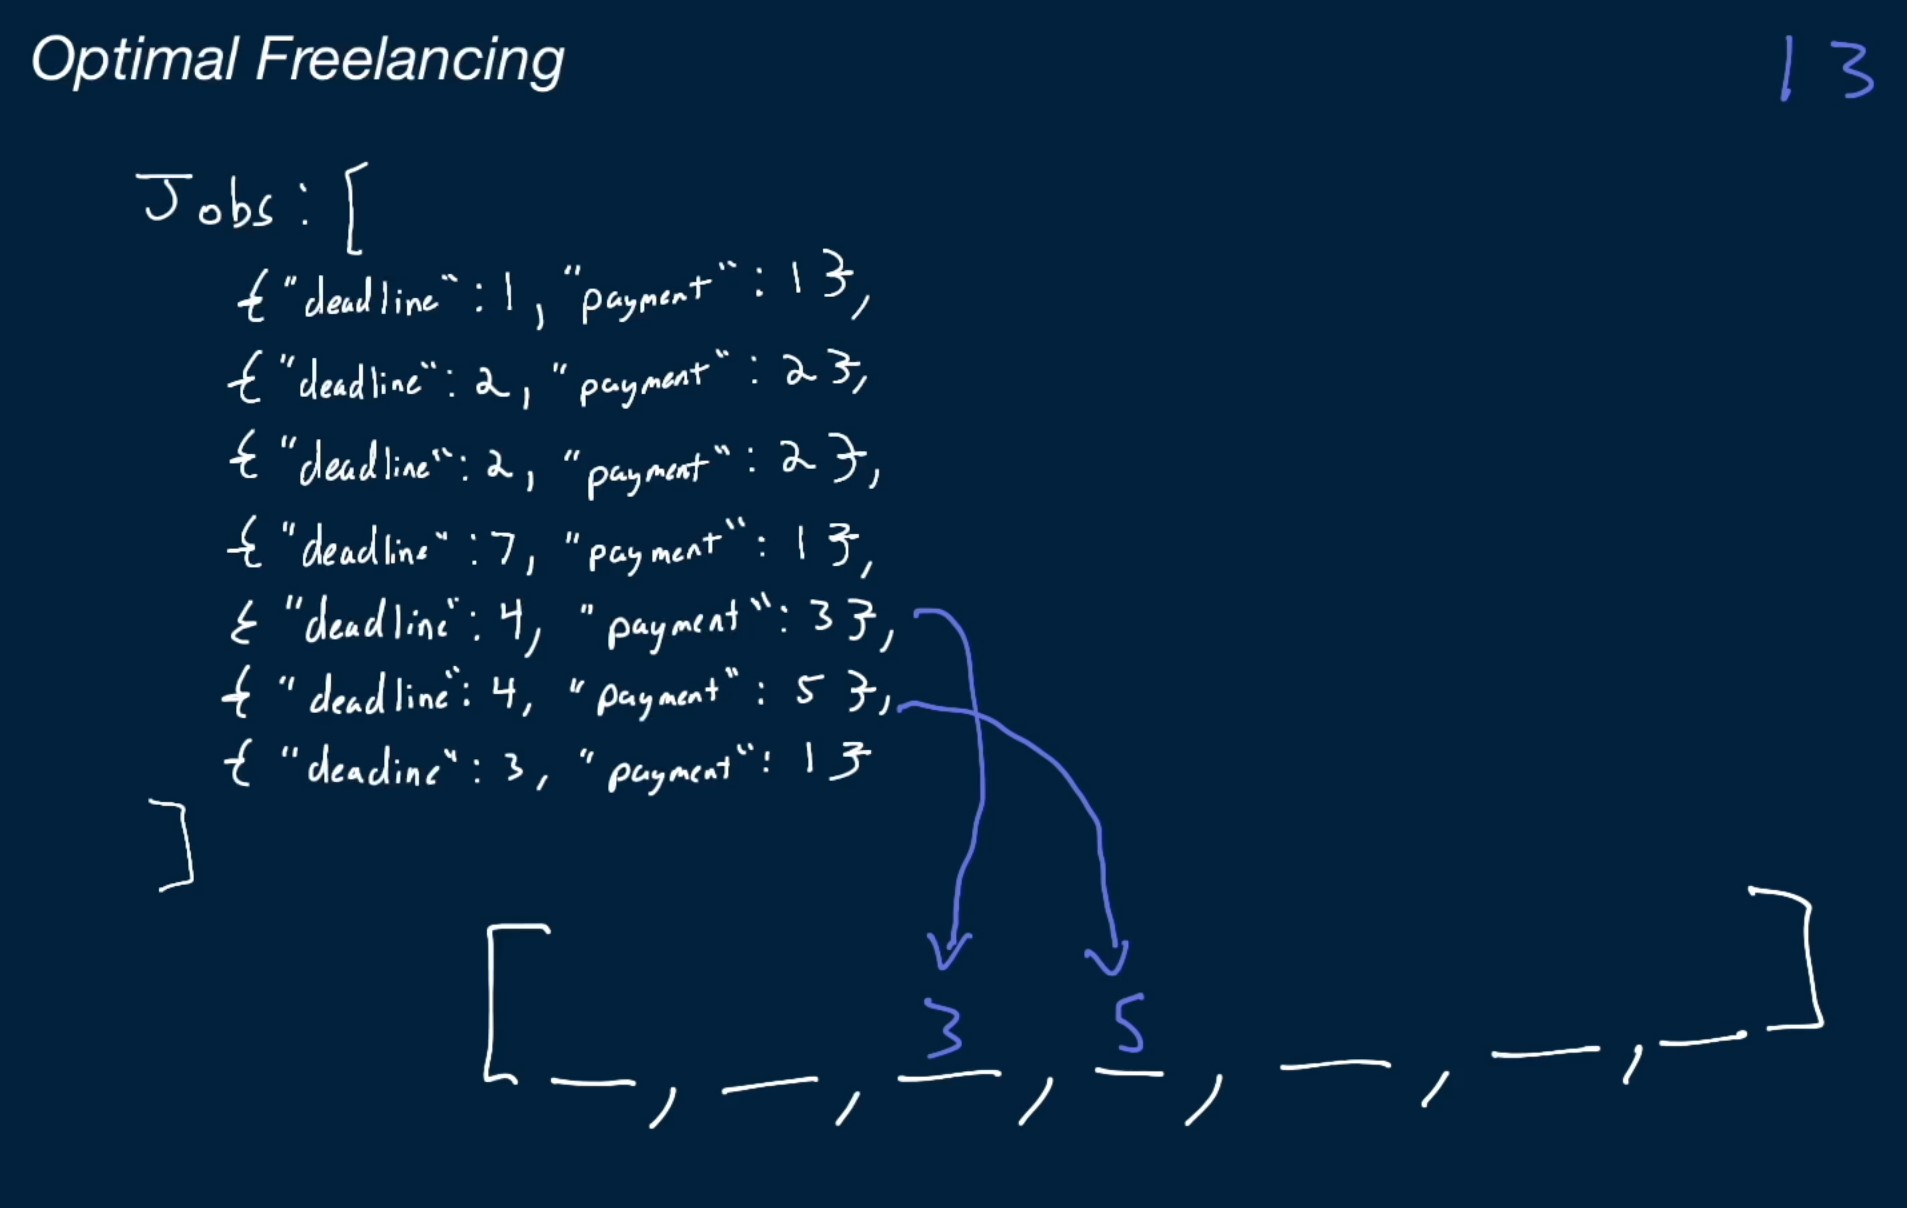 Optimal Freelancing
13
Jobs: [
{"deadline": 1, "payment": 1},
{"deadline": 2, "payment": 2},
{"deadline": 2, "payment": 2},
{"deadline": 7, "payment": 1},
{"deadline": 4, "payment": 3},
{"deadline": 4, "payment": 5},
{"deadine": 3, "payment": 1}
]
3 5
[_, _, _, _, _, _, _]